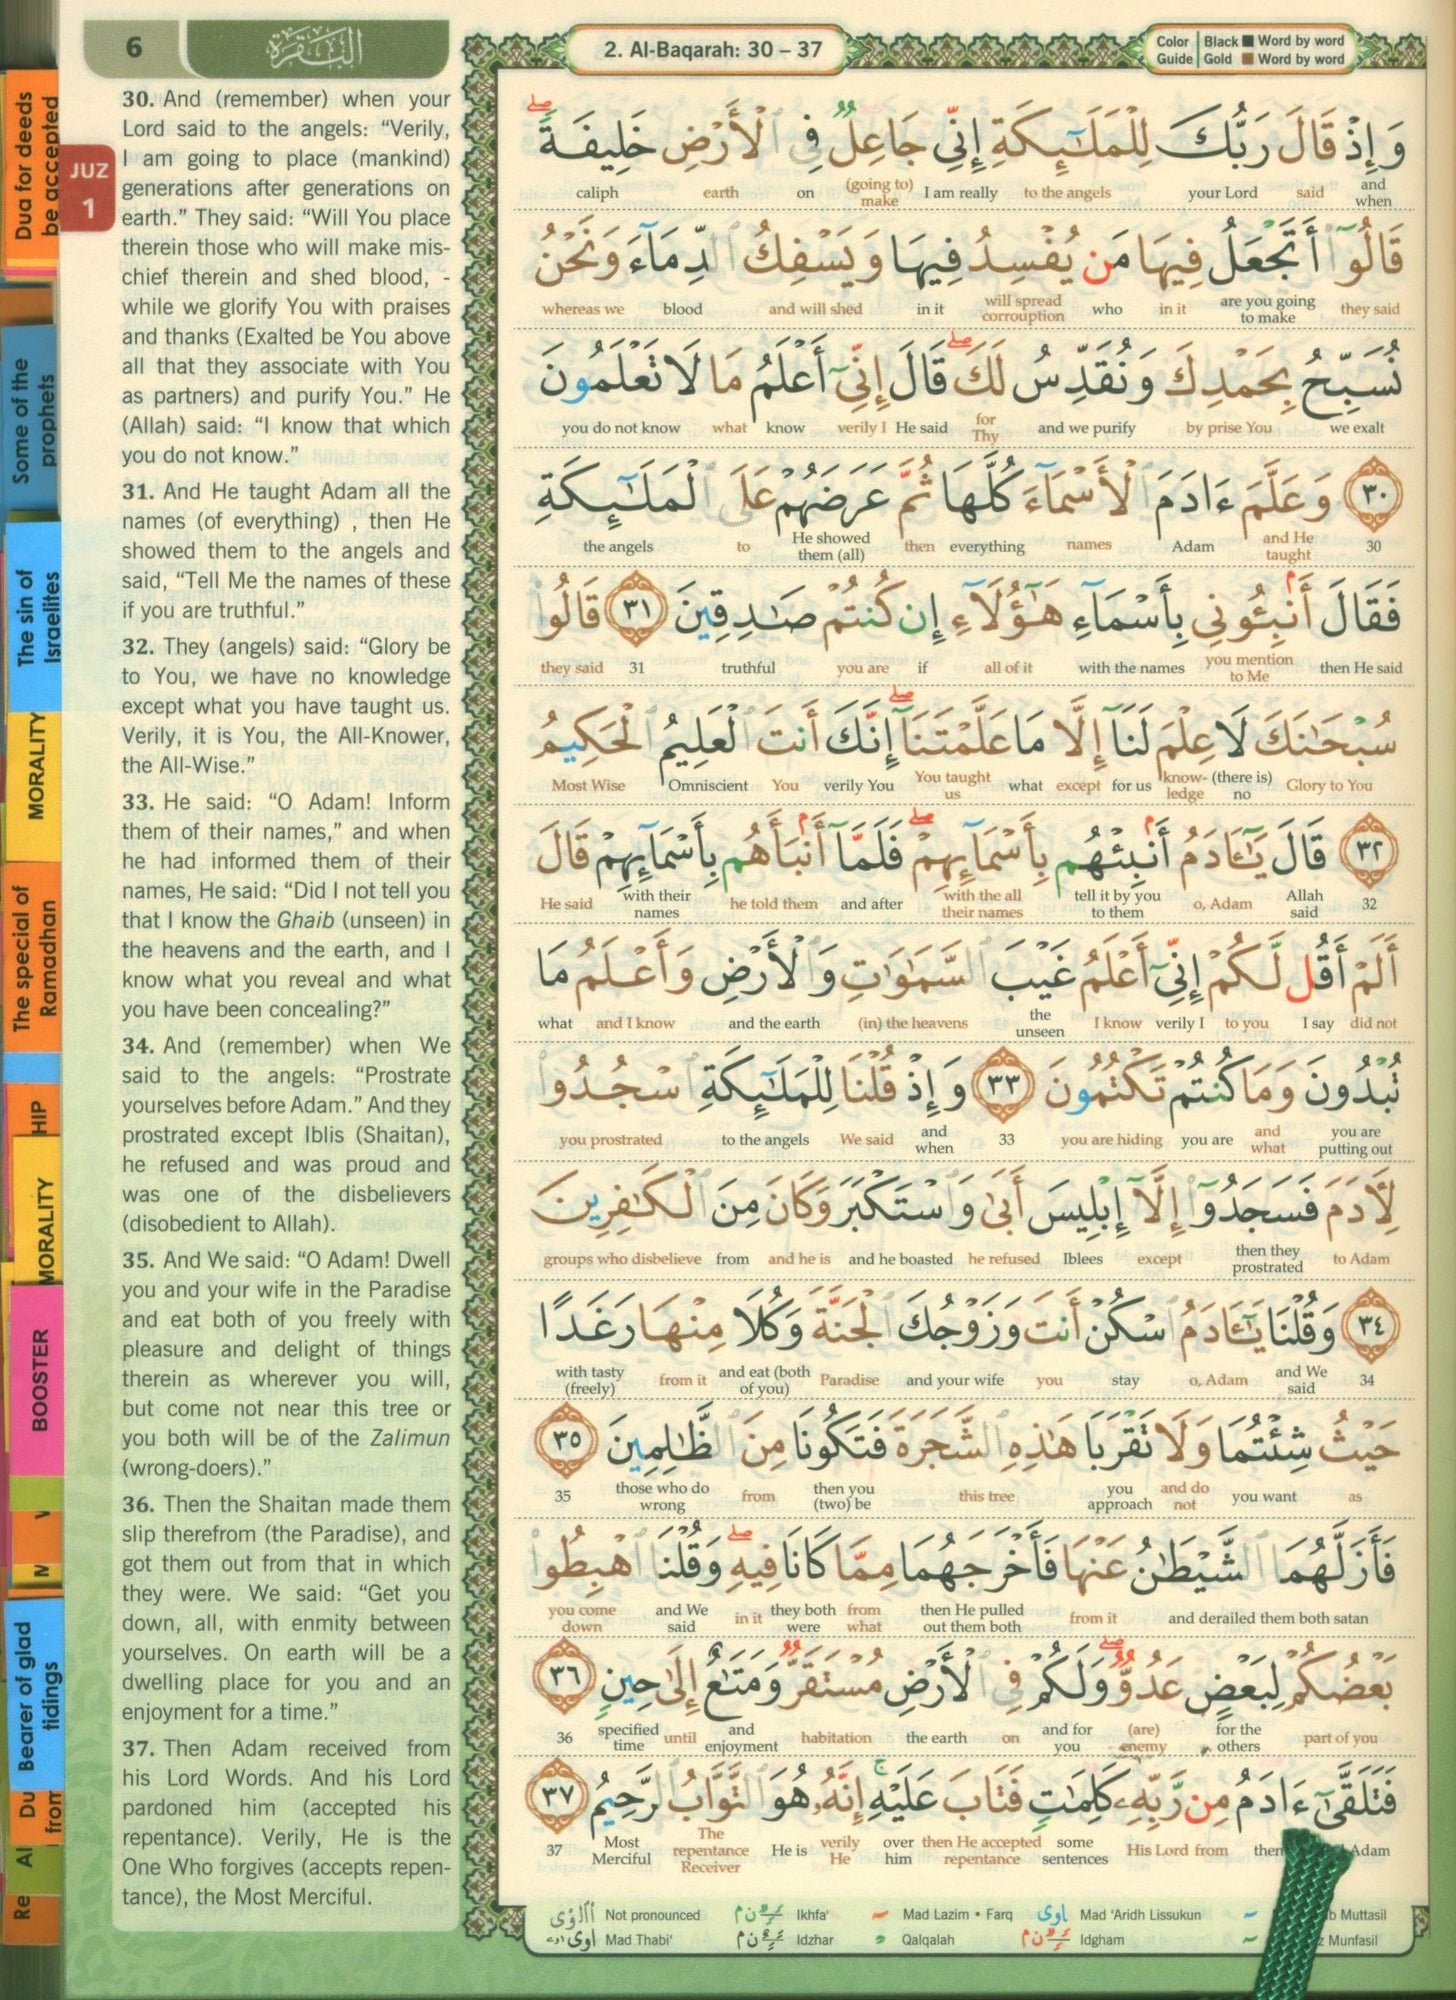 6
البقرة
2. Al-Baqarah: 30 – 37
Color Guide
Black ■ Word by word
Gold ■ Word by word
Dua for deeds
be accepted
Some of the
prophets
The sin of
Israelites
MORALITY
The special of
Ramadhan
HIP
MORALITY
BOOSTER
Bearer of glad
tidings
Du
from
Al
Re
JUZ
1
30. And (remember) when your
Lord said to the angels: “Verily,
I am going to place (mankind)
generations after generations on
earth.” They said: “Will You place
therein those who will make mis-
chief therein and shed blood, -
while we glorify You with praises
and thanks (Exalted be You above
all that they associate with You
as partners) and purify You.” He
(Allah) said: “I know that which
you do not know.”
31. And He taught Adam all the
names (of everything) , then He
showed them to the angels and
said, “Tell Me the names of these
if you are truthful.”
32. They (angels) said: “Glory be
to You, we have no knowledge
except what you have taught us.
Verily, it is You, the All-Knower,
the All-Wise.”
33. He said: “O Adam! Inform
them of their names,” and when
he had informed them of their
names, He said: “Did I not tell you
that I know the Ghaib (unseen) in
the heavens and the earth, and I
know what you reveal and what
you have been concealing?”
34. And (remember) when We
said to the angels: “Prostrate
yourselves before Adam.” And they
prostrated except Iblis (Shaitan),
he refused and was proud and
was one of the disbelievers
(disobedient to Allah).
35. And We said: “O Adam! Dwell
you and your wife in the Paradise
and eat both of you freely with
pleasure and delight of things
therein as wherever you will,
but come not near this tree or
you both will be of the Zalimun
(wrong-doers).”
36. Then the Shaitan made them
slip therefrom (the Paradise), and
got them out from that in which
they were. We said: “Get you
down, all, with enmity between
yourselves. On earth will be a
dwelling place for you and an
enjoyment for a time.”
37. Then Adam received from
his Lord Words. And his Lord
pardoned him (accepted his
repentance). Verily, He is the
One Who forgives (accepts repen-
tance), the Most Merciful.
وَإِذْ قَالَ رَبُّكَ لِلْمَلَٰٓئِكَةِ إِنِّى جَاعِلٌ فِى ٱلْأَرْضِ خَلِيفَةً ۖ
caliph earth on (going to) make I am really to the angels your Lord said and when
قَالُوٓا۟ أَتَجْعَلُ فِيهَا مَن يُفْسِدُ فِيهَا وَيَسْفِكُ ٱلدِّمَآءَ وَنَحْنُ
whereas we blood and will shed in it will spread corrouption who in it are you going to make they said
نُسَبِّحُ بِحَمْدِكَ وَنُقَدِّسُ لَكَ ۖ قَالَ إِنِّىٓ أَعْلَمُ مَا لَا تَعْلَمُونَ
you do not know what know verily I He said for Thy and we purify by prise You we exalt
٣٠ وَعَلَّمَ ءَادَمَ ٱلْأَسْمَآءَ كُلَّهَا ثُمَّ عَرَضَهُمْ عَلَى ٱلْمَلَٰٓئِكَةِ
the angels to He showed them (all) then everything names Adam and He taught 30
فَقَالَ أَنۢبِـُٔونِى بِأَسْمَآءِ هَٰٓؤُلَآءِ إِن كُنتُمْ صَٰدِقِينَ ٣١ قَالُوا۟
they said 31 truthful you are if all of it with the names you mention to Me then He said
سُبْحَٰنَكَ لَا عِلْمَ لَنَآ إِلَّا مَا عَلَّمْتَنَآ ۖ إِنَّكَ أَنتَ ٱلْعَلِيمُ ٱلْحَكِيمُ
Most Wise Omniscient You verily You You taught us what except for us know- ledge (there is) no Glory to You
٣٢ قَالَ يَٰٓـَٔادَمُ أَنۢبِئْهُم بِأَسْمَآئِهِمْ ۖ فَلَمَّآ أَنۢبَأَهُم بِأَسْمَآئِهِمْ قَالَ
He said with their names he told them and after with the all their names tell it by you to them o, Adam Allah said 32
أَلَمْ أَقُل لَّكُمْ إِنِّىٓ أَعْلَمُ غَيْبَ ٱلسَّمَٰوَٰتِ وَٱلْأَرْضِ وَأَعْلَمُ مَا
what and I know and the earth (in) the heavens the unseen I know verily I to you I say did not
تُبْدُونَ وَمَا كُنتُمْ تَكْتُمُونَ ٣٣ وَإِذْ قُلْنَا لِلْمَلَٰٓئِكَةِ ٱسْجُدُوا۟
you prostrated to the angels We said and when 33 you are hiding you are and what you are putting out
لِءَادَمَ فَسَجَدُوٓا۟ إِلَّآ إِبْلِيسَ أَبَىٰ وَٱسْتَكْبَرَ وَكَانَ مِنَ ٱلْكَٰفِرِينَ
groups who disbelieve from and he is and he boasted he refused Iblees except then they prostrated to Adam
٣٤ وَقُلْنَا يَٰٓـَٔادَمُ ٱسْكُنْ أَنتَ وَزَوْجُكَ ٱلْجَنَّةَ وَكُلَا مِنْهَا رَغَدًا
with tasty (freely) from it and eat (both of you) Paradise and your wife you stay o, Adam and We said 34
حَيْثُ شِئْتُمَا وَلَا تَقْرَبَا هَٰذِهِ ٱلشَّجَرَةَ فَتَكُونَا مِنَ ٱلظَّٰلِمِينَ ٣٥
35 those who do wrong from then you (two) be this tree you approach and do not you want as
فَأَزَلَّهُمَا ٱلشَّيْطَٰنُ عَنْهَا فَأَخْرَجَهُمَا مِمَّا كَانَا فِيهِ ۖ وَقُلْنَا ٱهْبِطُوا۟
you come down and We said in it they both were from what then He pulled out them both from it and derailed them both satan
بَعْضُكُمْ لِبَعْضٍ عَدُوٌّ ۖ وَلَكُمْ فِى ٱلْأَرْضِ مُسْتَقَرٌّ وَمَتَٰعٌ إِلَىٰ حِينٍ ٣٦
36 specified time until and enjoyment habitation the earth on and for you (are) enemy for the others part of you
فَتَلَقَّىٰٓ ءَادَمُ مِن رَّبِّهِۦ كَلِمَٰتٍ فَتَابَ عَلَيْهِ ۚ إِنَّهُۥ هُوَ ٱلتَّوَّابُ ٱلرَّحِيمُ ٣٧
37 Most Merciful The repentance Receiver He is verily He over him then He accepted repentance some sentences His Lord from then Adam
Not pronounced Ikhfa' Mad Lazim • Farq Mad 'Aridh Lissukun b Muttasil
Mad Thabi' Idzhar Qalqalah Idgham z Munfasil